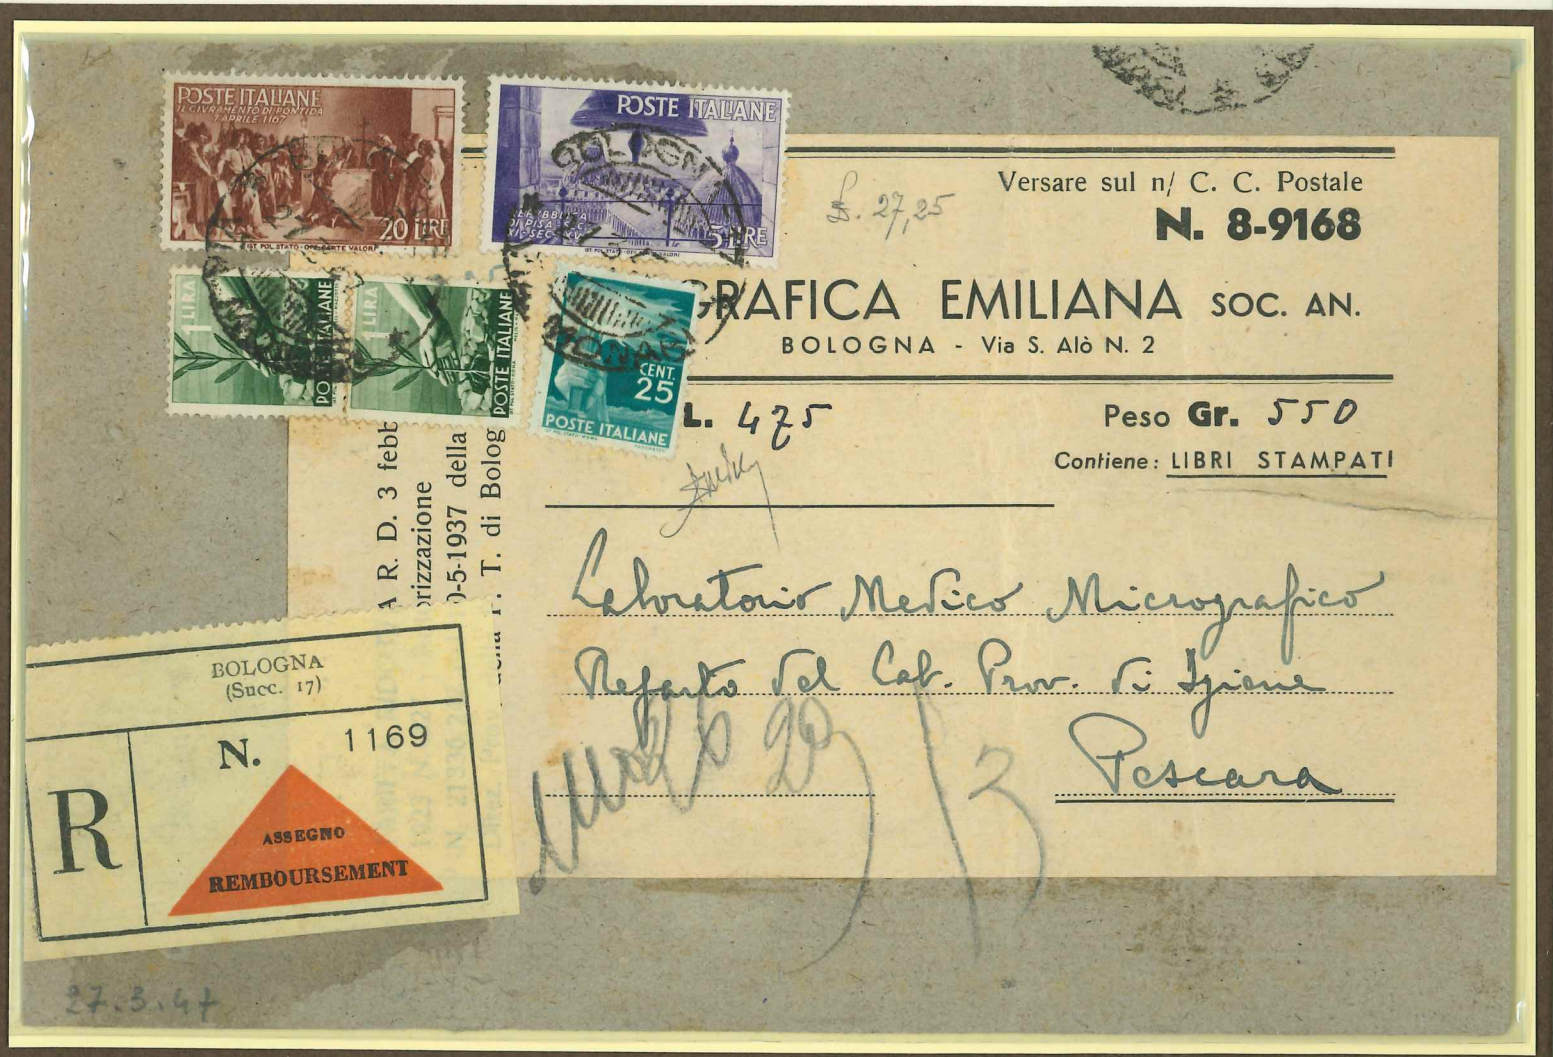 POSTE ITALIANE
IL GIURAMENTO DI PONTIDA
20 LIRE
IST. POL. STATO - OFF. CARTE VALORI
POSTE ITALIANE
REPUBBLICA
DI PISA
5 LIRE
IST. POL. STATO - OFF. CARTE VALORI
1 LIRA
POSTE ITALIANE
1 LIRA
POSTE ITALIANE
CENT
25
POSTE ITALIANE
BOLOGNA
£. 27,25
Versare sul n/ C. C. Postale
N. 8-9168
GRAFICA EMILIANA SOC. AN.
BOLOGNA - Via S. Alò N. 2
L. 475
Peso Gr. 550
Contiene: LIBRI STAMPATI
A R. D. 3 febb
orizzazione
0-5-1937 della
T. di Bolog
Laboratorio Medico Micrografico
Reparto del Lab. Prov. di Igiene
Pescara
BOLOGNA
(Succ. 17)
R
N. 1169
ASSEGNO
REMBOURSEMENT
27.3.47